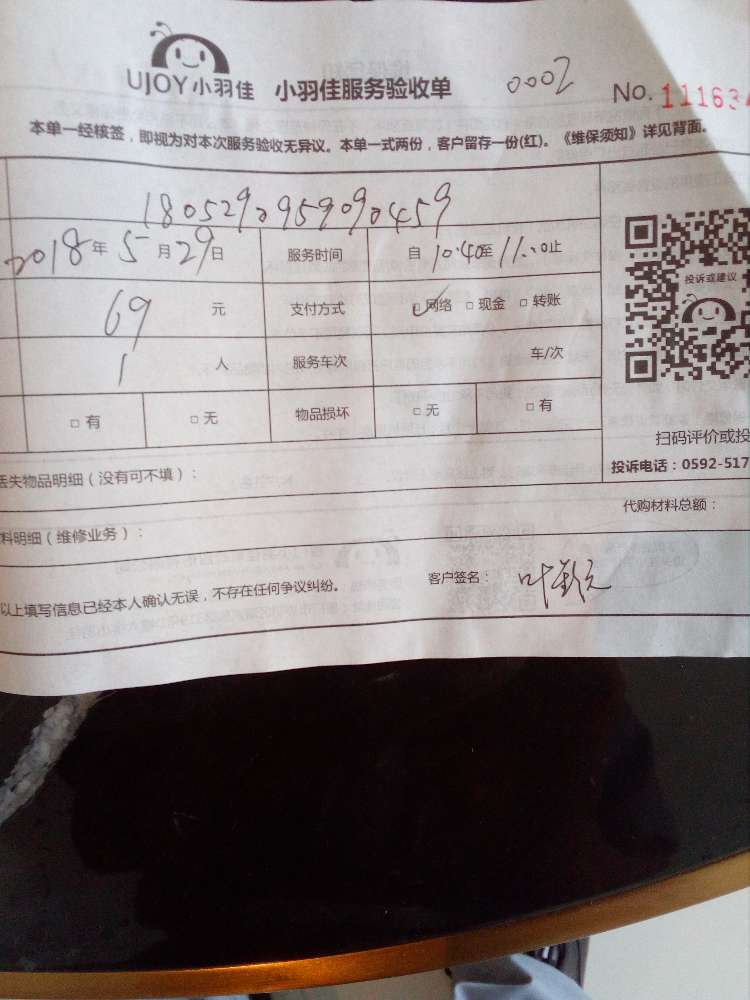 UJOY小羽佳 小羽佳服务验收单 0002 No. 11163
本单一经核签，即视为对本次服务验收无异议。本单一式两份，客户留存一份(红)。《维保须知》详见背面。
1805290959090459
2018年5月29日 服务时间 自10:40至11:20止
投诉或建议
69 元 支付方式 □网络 □现金 □转账
1 人 服务车次 车/次
□有 □无 物品损坏 □无 □有
扫码评价或投
丢失物品明细（没有可不填）：
投诉电话：0592-517
代购材料总额：
料明细（维修业务）：
以上填写信息已经本人确认无误，不存在任何争议纠纷。 客户签名：叶